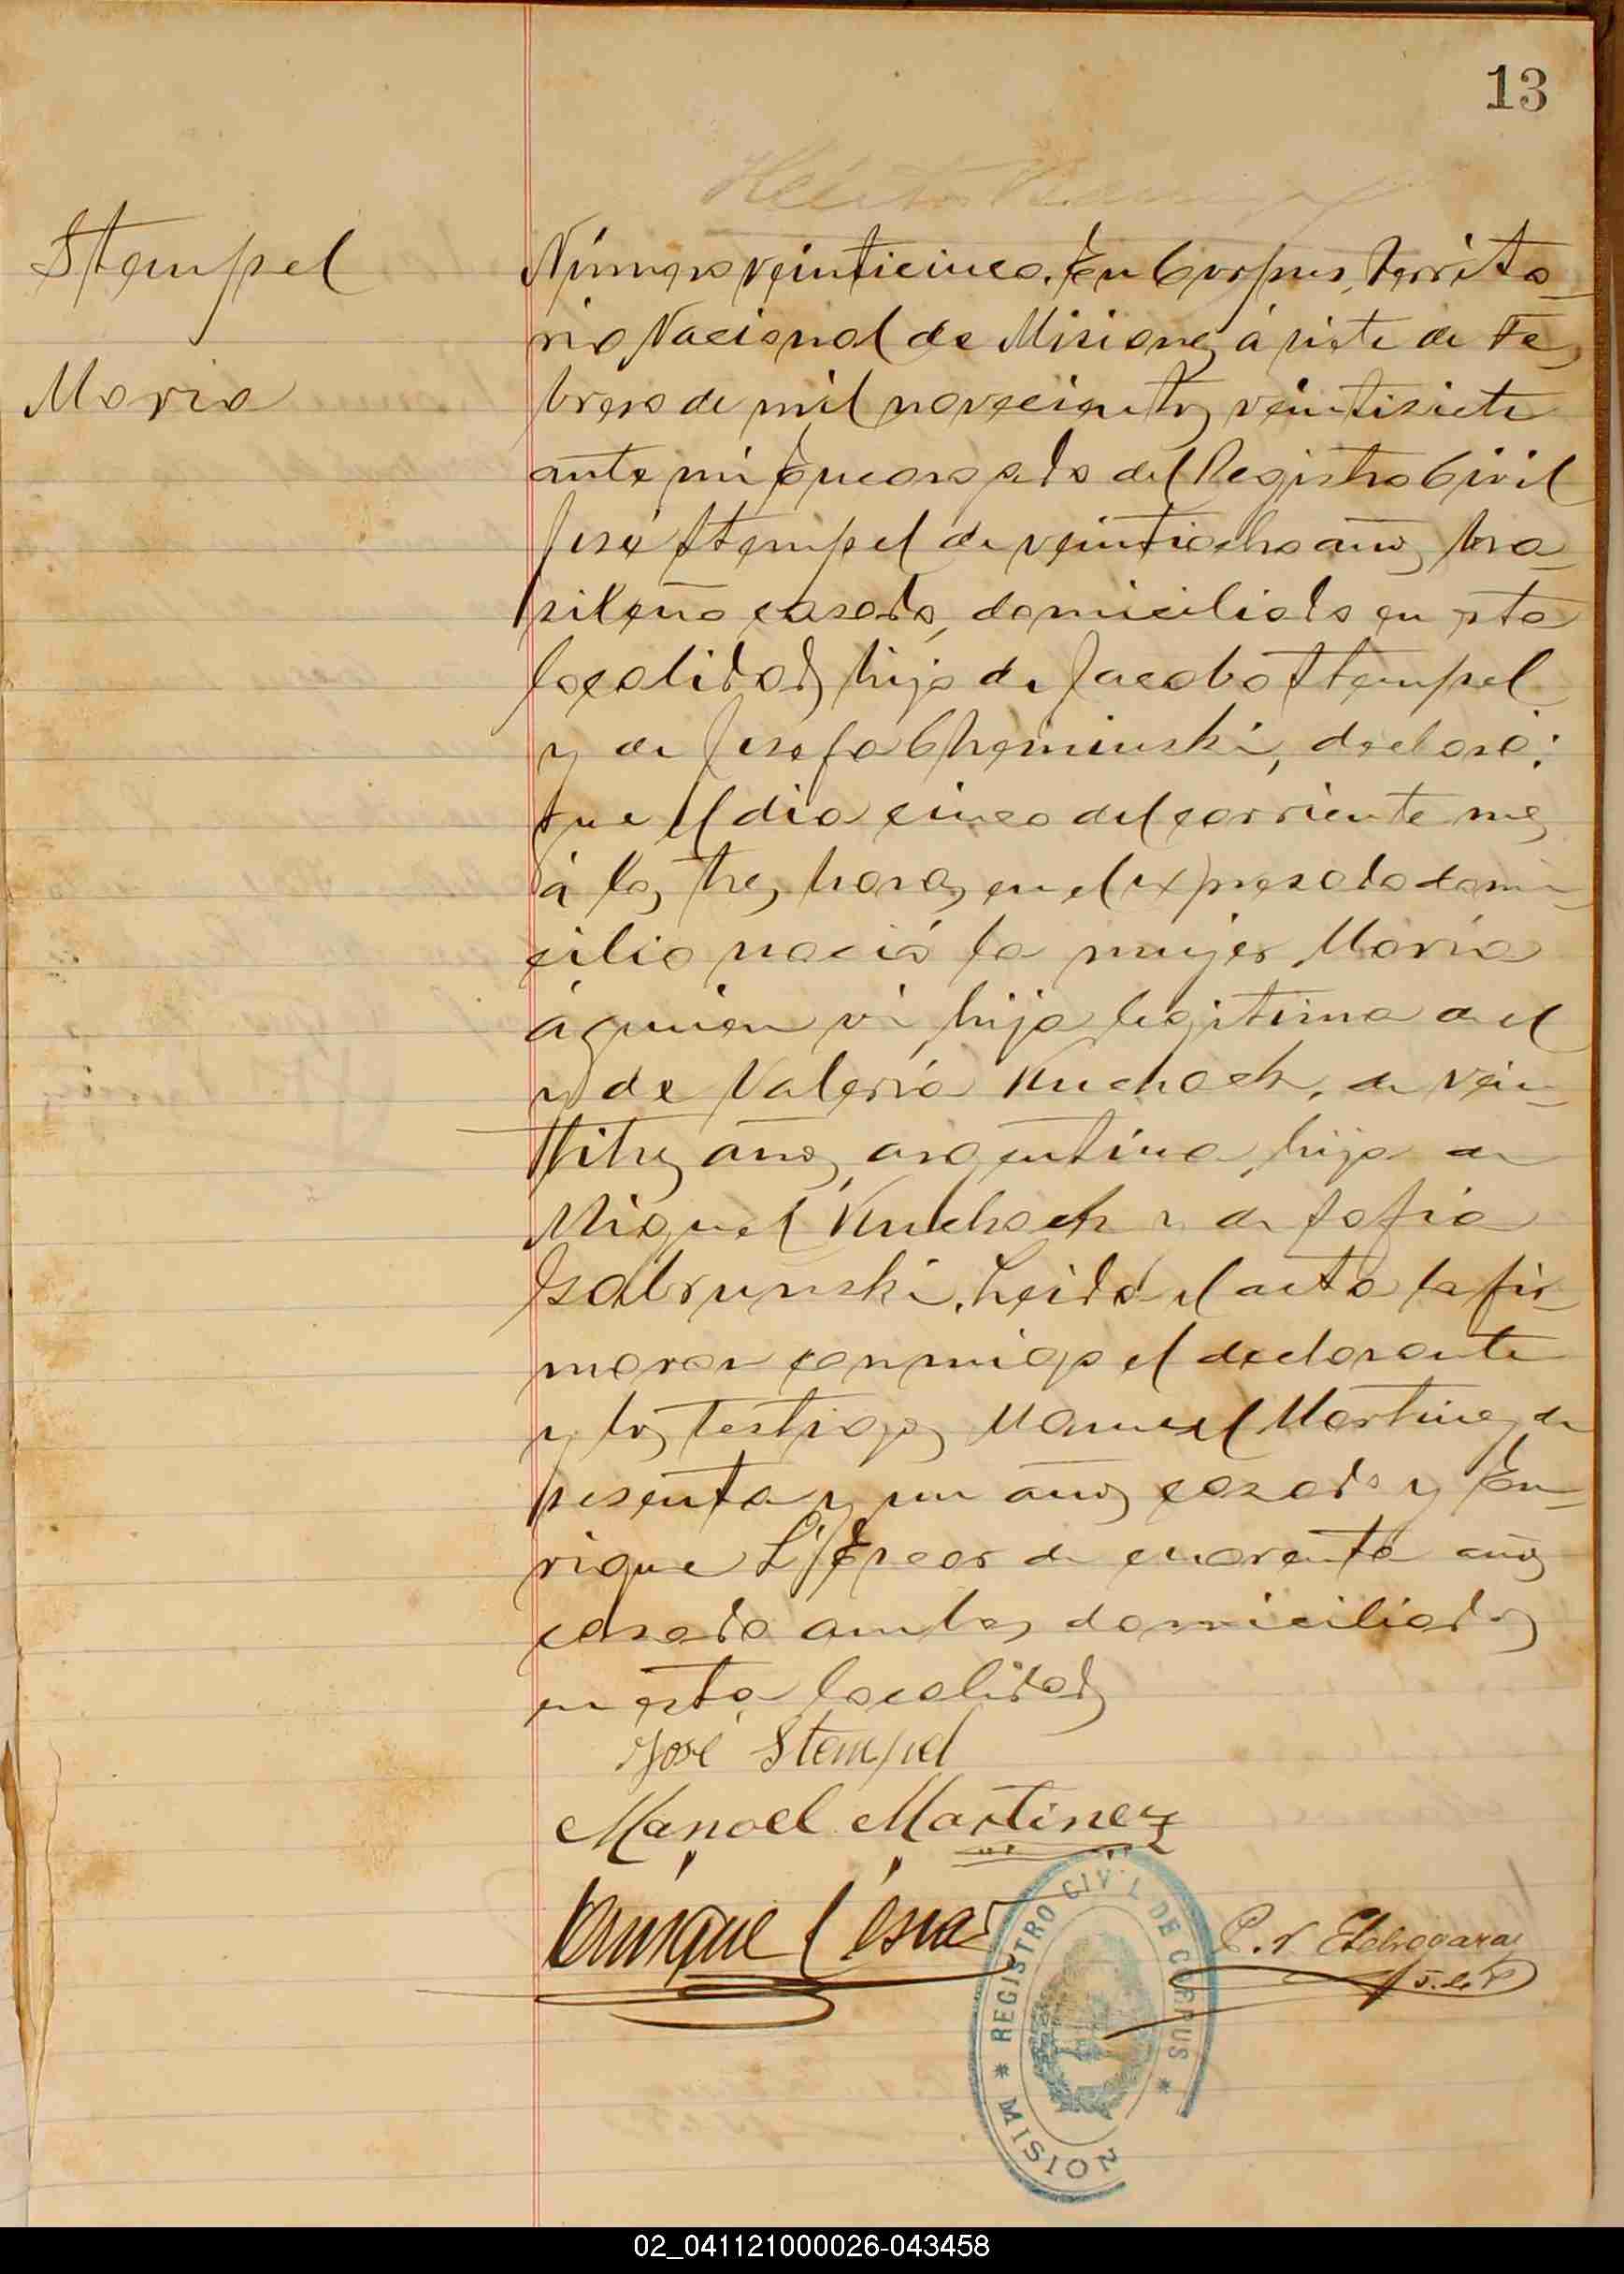 13
Stempel
Maria
Número veinticinco. En Corpus, Territo-
rio Nacional de Misiones á siete de Fe-
brero de mil novecientos veintisiete
ante mi Encargado del Registro Civil
José Stempel de veintiocho años, bra-
sileño casado, domiciliado en esta
localidad, hijo de Jacobo Stempel
y de Josefa Cheminski, declaró:
Que el dia cinco del corriente mes
á las tres horas en el expresado domi-
cilio nació la mujer María
á quien vi hija legitima de el
y de Valeria Kuchach, de vein-
titres años, argentina hija de
Miguel Kuchach y de Sofia
Gabrunski. Leida el acta la fir-
maron conmigo el declarante
y los testigos Manuel Martinez de
sesenta y un años casado y En-
rique de cuarenta años
casado ambos domiciliados
en esta localidad
José Stempel
Manoel Martinez
Enrique
P. N. Etchegaray
J. de P
REGISTRO CIVIL DE CORPUS
MISION
02_041121000026-043458